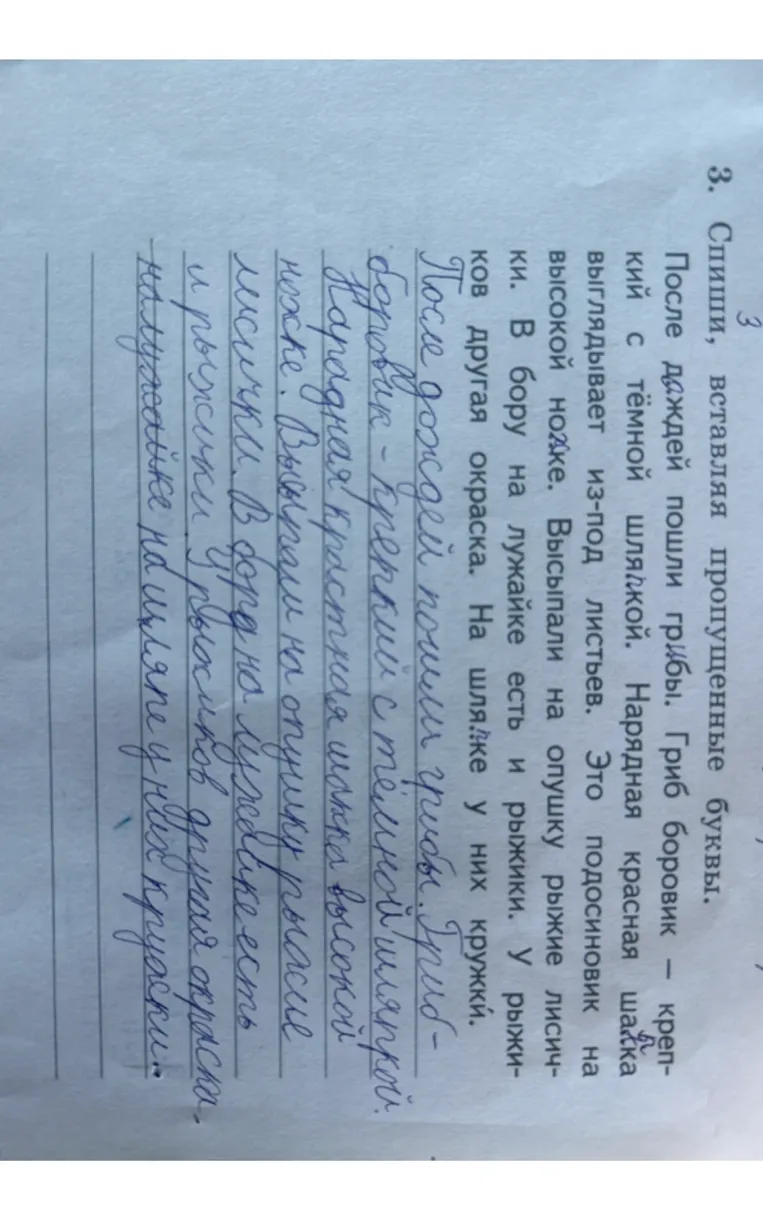 3
3. Спиши, вставляя пропущенные буквы.
После дождей пошли грибы. Гриб боровик — креп-
кий с тёмной шляпкой. Нарядная красная шапка
выглядывает из-под листьев. Это подосиновик на
высокой ножке. Высыпали на опушку рыжие лисич-
ки. В бору на лужайке есть и рыжики. У рыжи-
ков другая окраска. На шляпке у них кружки́.
После дождей пошли грибы. Гриб-
боровик - крепкий с тёмной шляпкой.
Нарядная крастная шапка высокой
ножке. Высыпали на опушку рыжие
лисички. В бору на лужайке есть
и рыжики У рыжиков другая окраска.
на лужайке на шляпе у них кружки..